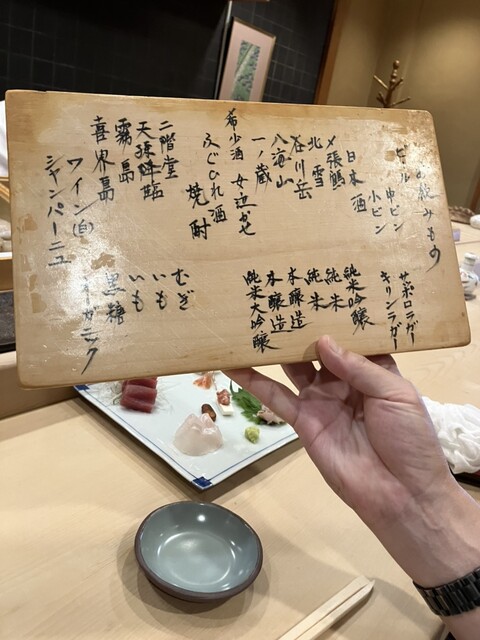 お飲みもの
ビール 中ビン サッポロラガー
小ビン キリンラガー
日本酒
〆張鶴 純米吟醸
北雪 純米
谷川岳 純米
八海山 本醸造
一ノ蔵 本醸造
希少酒 女泣かせ 純米大吟醸
ふぐひれ酒
焼酎
二階堂 むぎ
天孫降臨 いも
霧島 いも
喜界島 黒糖
ワイン(白) オーガニック
シャンパーニュ